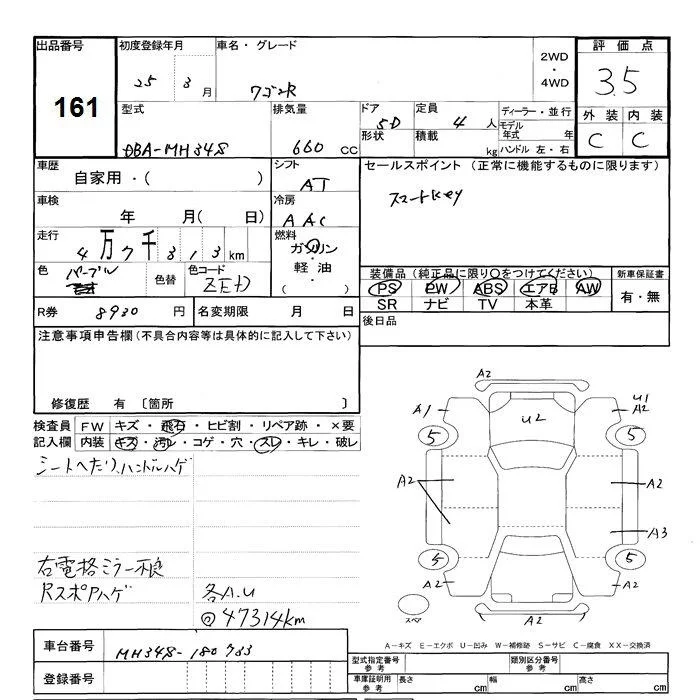 出品番号 161
初度登録年月 25 3 月
車名・グレード ワゴンR
2WD ・ 4WD
評価点 3.5
外装 C 内装 C
型式 DBA-MH34S
排気量 660 CC
ドア 5D 形状
定員 4 人 積載 kg
ディーラー・並行
モデル年式 年
ハンドル 左・右
車歴 自家用・( )
シフト AT
セールスポイント (正常に機能するものに限ります)
スマートkey
車検 年 月( 日)
冷房 AAC
走行 4万7千313km
燃料 ガソリン・軽油・( )
色 パープル 色替
色コード ZEM
装備品 (純正品に限り○をつけてください)
PS PW ABS エアB AW
SR ナビ TV 本革
新車保証書 有・無
R券 8930 円
名変期限 月 日
後日品
注意事項申告欄 (不具合内容等は具体的に記入して下さい)
修復歴 有 〔箇所 〕
検査員記入欄
FW キズ・飛石・ヒビ割・リペア跡・×要
内装 キズ・汚レ・コゲ・穴・スレ・キレ・破レ
シートへたり、ハンドルハゲ
右電格ミラー不良
Rスポアハゲ
各A.U
@47314km
A2
A1 U2 U1 A2
5 5
A2 A2
A3
5 5
A2 A2
スペア A2
A-キズ E-エクボ U-凹み W-補修跡 S-サビ C-腐食 XX-交換済
車台番号 MH34S-180733
登録番号
型式指定番号 参考
類別区分番号 参考
車庫証明用 参考 長さ cm 幅 cm 高さ cm